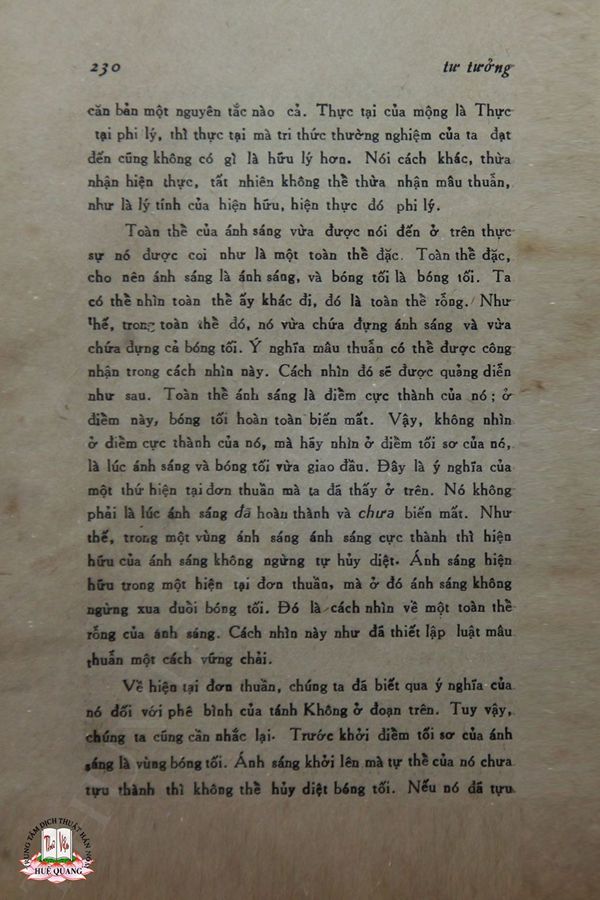 230 tư tưởng
căn bản một nguyên tắc nào cả. Thực tại của mộng là Thực
tại phi lý, thì thực tại mà tri thức thường nghiệm của ta đạt
đến cũng không có gì là hữu lý hơn. Nói cách khác, thừa
nhận hiện thực, tất nhiên không thể thừa nhận mâu thuẫn,
như là lý tính của hiện hữu, hiện thực đó phi lý.
Toàn thể của ánh sáng vừa được nói đến ở trên thực
sự nó được coi như là một toàn thể đặc. Toàn thể đặc,
cho nên ánh sáng là ánh sáng, và bóng tối là bóng tối. Ta
có thể nhìn toàn thể ấy khác đi, đó là toàn thể rỗng. Như
thế, trong toàn thể đó, nó vừa chứa đựng ánh sáng và vừa
chứa đựng cả bóng tối. Ý nghĩa mâu thuẫn có thể được công
nhận trong cách nhìn này. Cách nhìn đó sẽ được quảng diễn
như sau. Toàn thể ánh sáng là điểm cực thành của nó ; ở
điểm này, bóng tối hoàn toàn biến mất. Vậy, không nhìn
ở điểm cực thành của nó, mà hãy nhìn ở điểm tối sơ của nó,
là lúc ánh sáng và bóng tối vừa giao đầu. Đây là ý nghĩa của
một thứ hiện tại đơn thuần mà ta đã thấy ở trên. Nó không
phải là lúc ánh sáng đã hoàn thành và chưa biến mất. Như
thế, trong một vùng ánh sáng ánh sáng cực thành thì hiện
hữu của ánh sáng không ngừng tự hủy diệt. Ánh sáng hiện
hữu trong một hiện tại đơn thuần, mà ở đó ánh sáng không
ngừng xua đuổi bóng tối. Đó là cách nhìn về một toàn thể
rỗng của ánh sáng. Cách nhìn này như đã thiết lập luật mâu
thuẫn một cách vững chải.
Về hiện tại đơn thuần, chúng ta đã biết qua ý nghĩa của
nó đối với phê bình của tánh Không ở đoạn trên. Tuy vậy,
chúng ta cũng cần nhắc lại. Trước khởi điểm tối sơ của ánh
sáng là vùng bóng tối. Ánh sáng khởi lên mà tự thể của nó chưa
tựu thành thì không thể hủy diệt bóng tối. Nếu nó đã tựu
TRUNG TÂM DỊCH THUẬT HÁN NÔM
HUỆ QUANG